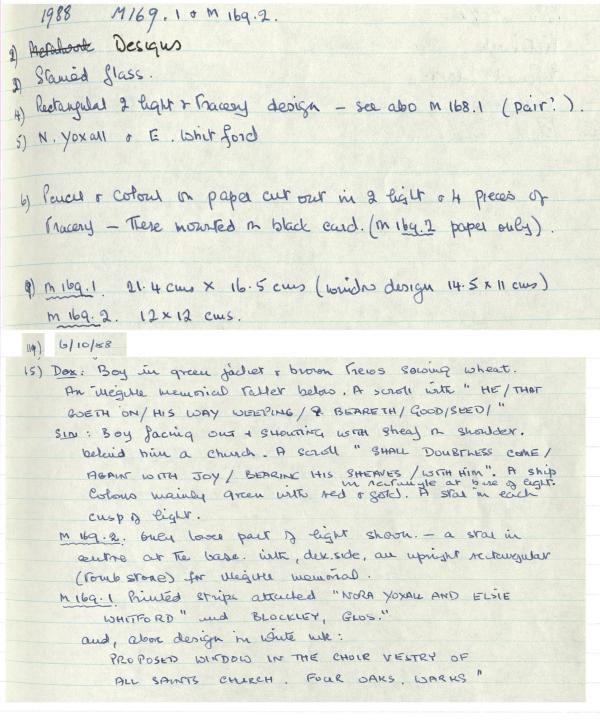 1988 M169.1 & M169.2.
2) Designs
3) Stained glass.
4) Rectangular 2 light & Tracery design – see also M168.1 (pair?).
5) N. Yoxall & E. Whitford
6) Pencil & colour on paper cut out in 2 light & 4 pieces of
Tracery – These mounted on black card. (M169.2 paper only).
9) M169.1. 21.4 cms × 16.5 cms (window design 14.5 × 11 cms)
M169.2. 12 × 12 cms.
14) 6/10/88
15) Dex: Boy in green jacket & brown trews sowing wheat.
An illegible memorial tablet below. A scroll with " HE/THAT
GOETH ON/HIS WAY WEEPING/& BEARETH/GOOD/SEED/"
SIN: Boy facing out & SHOUTING with sheaf on shoulder.
behind him a church. A scroll " SHALL DOUBTLESS COME/
AGAIN WITH JOY/BEARING HIS SHEAVES/WITH HIM". A ship
in rectangle at base of light.
Colours mainly green with red & gold. A star in each
cusp of light.
M169.2. Only lower part of light shown. – a star in
centre at the base. with, dex.side, an upright rectangular
(tomb stone) for illegible memorial.
M169.1 Printed strips attached "NORA YOXALL AND ELSIE
WHITFORD" and BLOCKLEY, GLOS."
and, above design in white ink:
PROPOSED WINDOW IN THE CHOIR VESTRY OF
ALL SAINTS CHURCH. FOUR OAKS. WARKS"